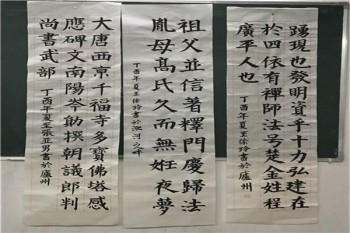 踴現也發明資乎十力弘建在
於四依有禪師法号楚金姓程
廣平人也
丁酉年夏王依玲書於廬州
祖父並信著釋門慶歸法
胤母高氏久而無妊夜夢
丁酉年夏王依玲書於淝河之畔
大唐西京千福寺多寶佛塔感
應碑文南陽岑勛撰朝議郎判
尚書武部
丁酉年夏至張亞男書於廬州